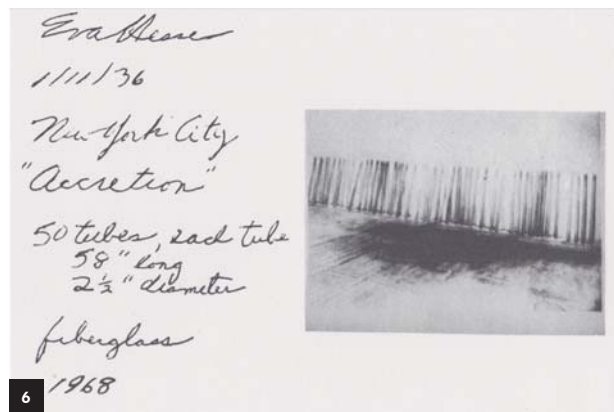 Eva Hesse
1/11/36
New York City
"Accretion"
50 tubes, each tube
58" long
2 1/2" diameter
fiberglass
1968
6